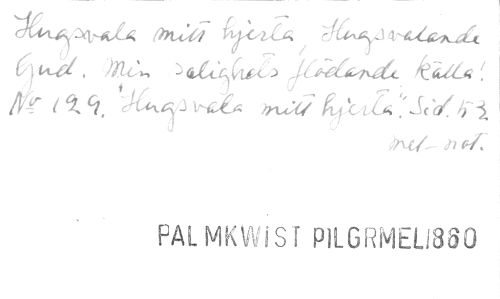 Hugsvala mitt hjerta, Hugsvalande
Gud. Min salighets flödande källa!
No 129. "Hugsvala mitt hjerta". Sid. 53
mel-not.
PALMKWIST PILGRMEL1860